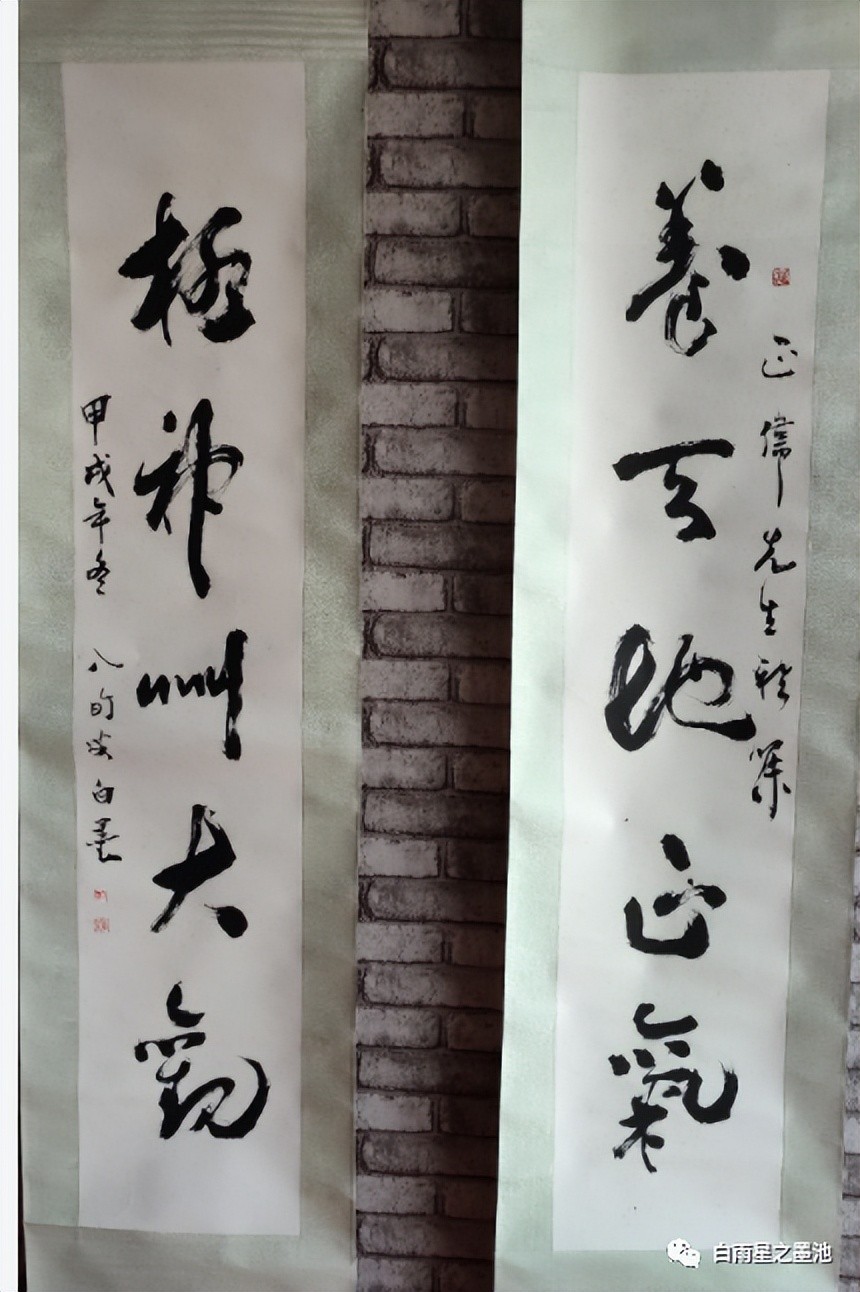 正儒先生雅
養天地正氣
極神州大觀
甲戌年冬 八旬叟白墨
白雨星之墨池